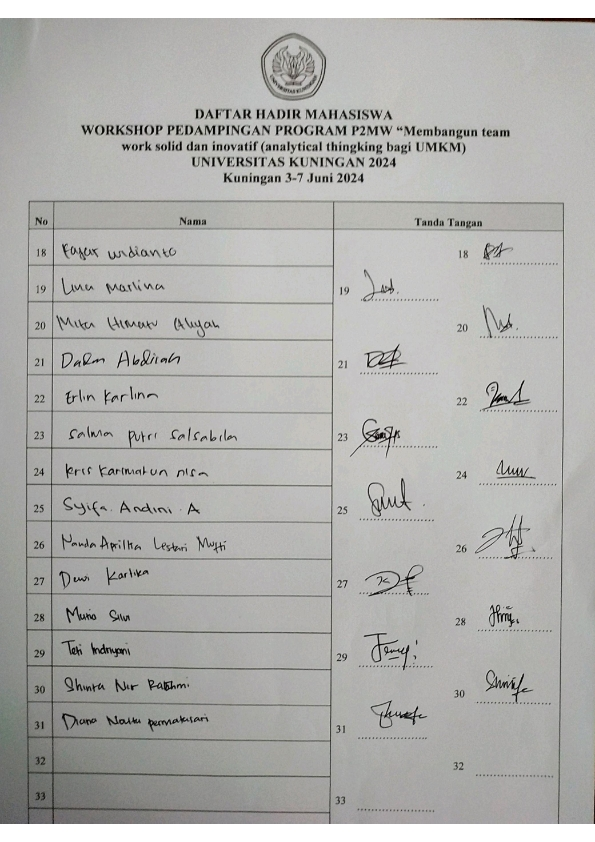 UNIVERSITAS KUNINGAN
DAFTAR HADIR MAHASISWA
WORKSHOP PEDAMPINGAN PROGRAM P2MW “Membangun team
work solid dan inovatif (analytical thingking bagi UMKM)
UNIVERSITAS KUNINGAN 2024
Kuningan 3-7 Juni 2024
No Nama Tanda Tangan
18 Fajar urdianto 18
19 Lina Marlina 19
20 Mita Himatu Aliyah 20
21 21
22 Erlin Karlina 22
23 Salma putri Salsabila 23
24 kris karimatun nisa 24
25 Syifa Andini. A 25
26 Nanda Aprilia Lestari 26
27 Dewi Kartika 27
28 28
29 Teti Indriyani 29
30 Shinta Nur Rakhmi 30
31 Diana permatasari 31
32 32
33 33